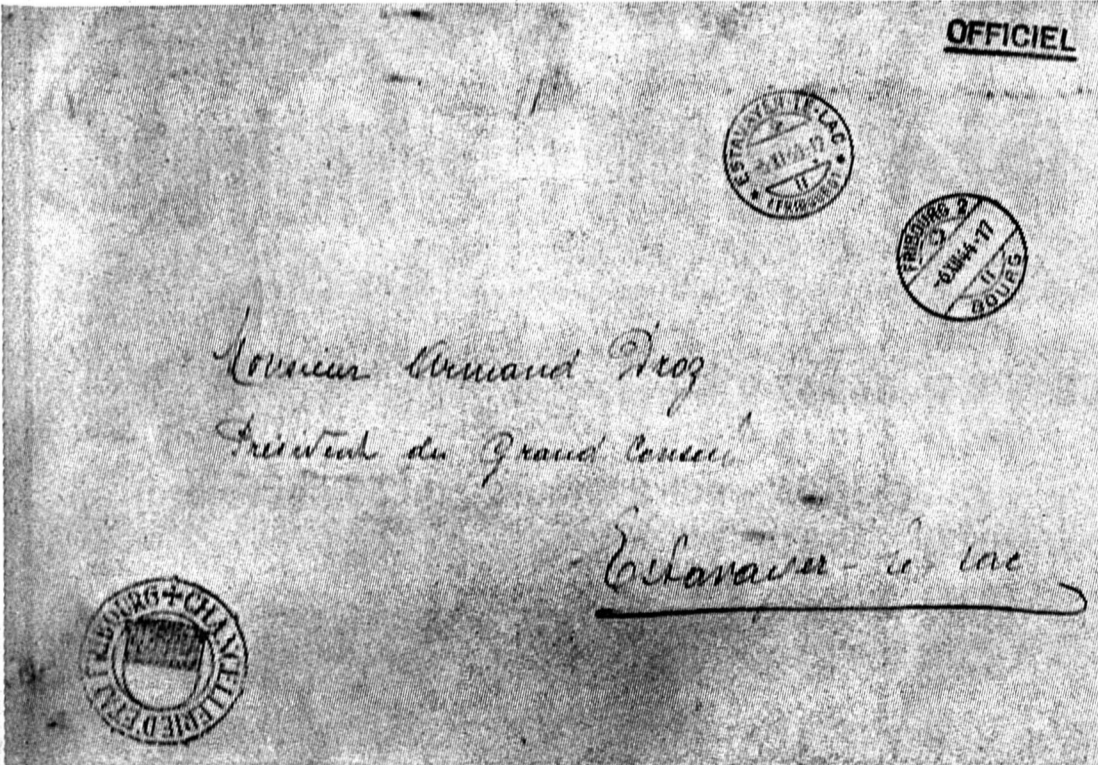 OFFICIEL
ESTAVAYER-LE-LAC
(FRIBOURG)
FRIBOURG 2
-6.XII.44-17
BOURG
Monsieur Armand Droz
Président du Grand Conseil
Estavayer-le-lac
CHANCELLERIE D'ETAT FRIBOURG